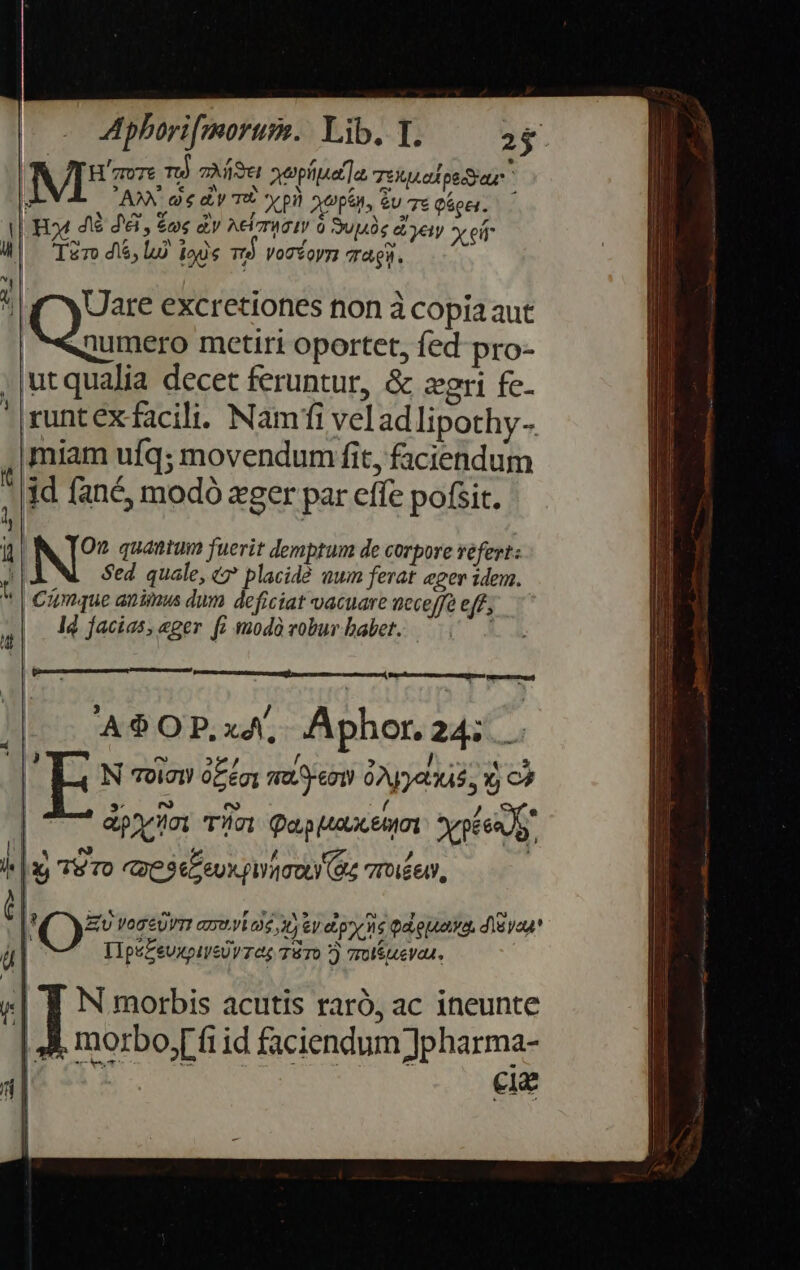 Aphorismorum. Lib. I. 25
Μή ποτε τῷ πλήθει χωρήματα τεκμαίρεσθαι·
Ἀλλ' ὡς ἂν τὰ χρὴ χωρέῃ, εὖ τε φέρει.
Ἠγὲ δὲ δεῖ, ἕως ἂν λείπησιν ὁ θυμὸς ἄγειν χρή·
Τοῦτο δὲ, ἰὼ ἰχὺς τῷ νοσέοντι παρῇ.
QUare excretiones non à copia aut
numero metiri oportet, sed pro-
ut qualia decet feruntur, & ægri fe-
runt ex facili. Nam si vel ad lipothy-
miam usq; movendum sit, faciendum
id sané, modò æger par esse possit.
NOn quantum fuerit demptum de corpore refert:
Sed quale, & placidè num ferat æger idem.
Cúmque animus dum deficiat vacuare necesse est,
Id facias, æger si modò robur habet.
ἈΦΟΡ. κδ΄. Aphor. 24.
ἘΝ τοῖσιν ὀξέσι πάθεσιν ὀλιγάκις, καὶ ἐν
ἀρχῇσι τῇσι φαρμακείῃσι χρέεσθαι·
καὶ τοῦτο προεξευκρινήσαντας ποιέειν.
Ὀξὺ νοσεῦντι σπανίως, καὶ ἐν ἀρχῇς φάρμακα δοῦναι·
Πρὶν ἐξευκρινεῦντας τοῦτο ποιούμεναι.
IN morbis acutis rarò, ac ineunte
morbo,[ si id faciendum ]pharma-
ciæ